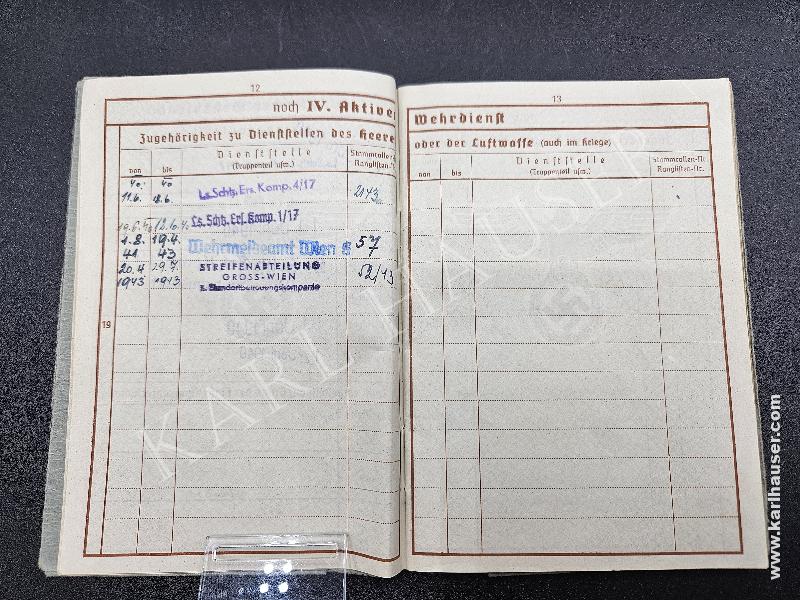 12
noch IV. Aktiver
Zugehörigkeit zu Dienststellen des Heeres
von
bis
Dienststelle
(Truppenteil usw.)
Stammrollen-
Ranglisten-Nr.
40. 40
11.6. 18.6.
Ls. Schtz. Ers. Komp. 4/17
2143
19.6.
Ls. Schtz. Ers. Komp. 1/17
1.8. 19.4.
41 43
Wehrmeldeamt Wien
57
20.4 29.7.
1943 1943
STREIFENABTEILUNG
GROSS-WIEN
52/43
19
13
Wehrdienst
oder der Luftwaffe (auch im Kriege)
von
bis
Dienststelle
(Truppenteil usw.)
Stammrollen-Nr.
Ranglisten-Nr.
KARL HAUSER
www.karlhauser.com